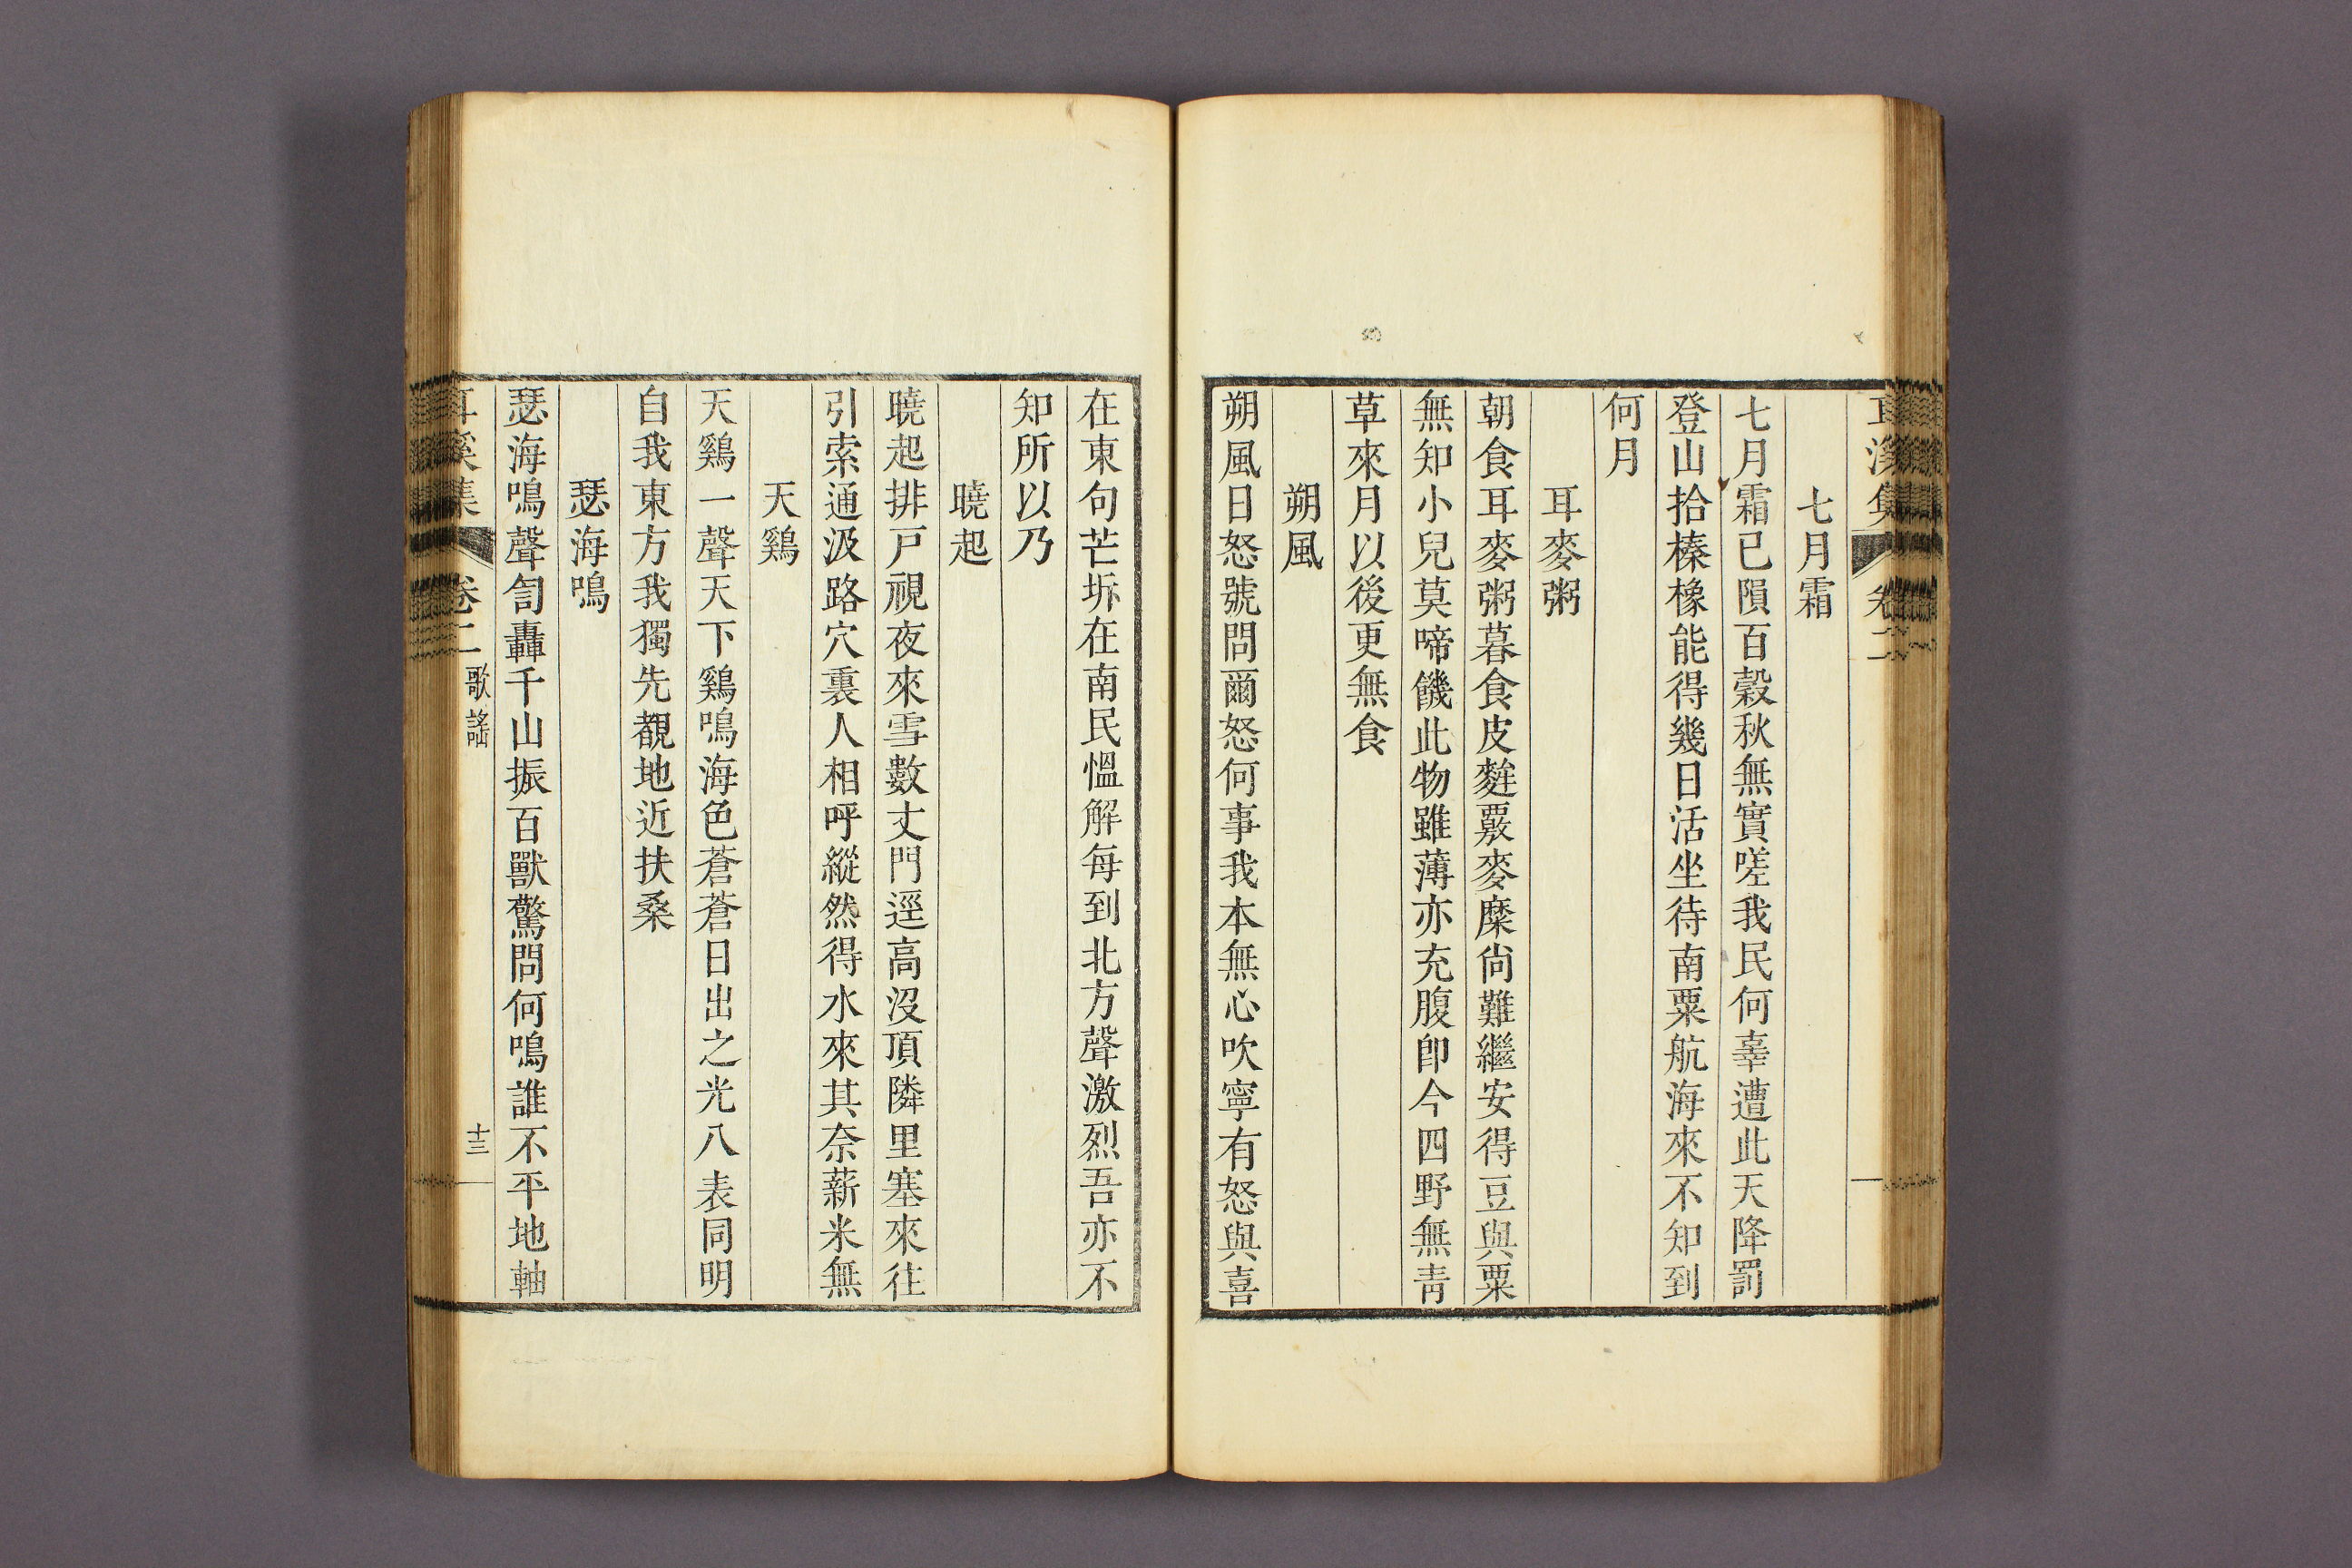 耳溪集 卷二
七月霜
七月霜已隕百穀秋無實嗟我民何辜遭此天降罰
登山拾榛橡能得幾日活坐待南粟航海來不知到
何月
耳麥粥
朝食耳麥粥暮食皮麰覈麥糜尙難繼安得豆與粟
無知小兒莫啼饑此物雖薄亦充腹卽今四野無靑
草來月以後更無食
朔風
朔風日怒號問爾怒何事我本無心吹寧有怒與喜
在東句芒坼在南民慍解每到北方聲激烈吾亦不
知所以乃
曉起
曉起排戶視夜來雪數丈門逕高沒頂隣里塞來往
引索通汲路穴裏人相呼縱然得水來其奈薪米無
天鷄
天鷄一聲天下鷄鳴海色蒼蒼日出之光八表同明
自我東方我獨先覩地近扶桑
瑟海鳴
瑟海鳴聲訇轟千山振百獸驚問何鳴誰不平地軸
耳溪集 卷二 歌謠 十三